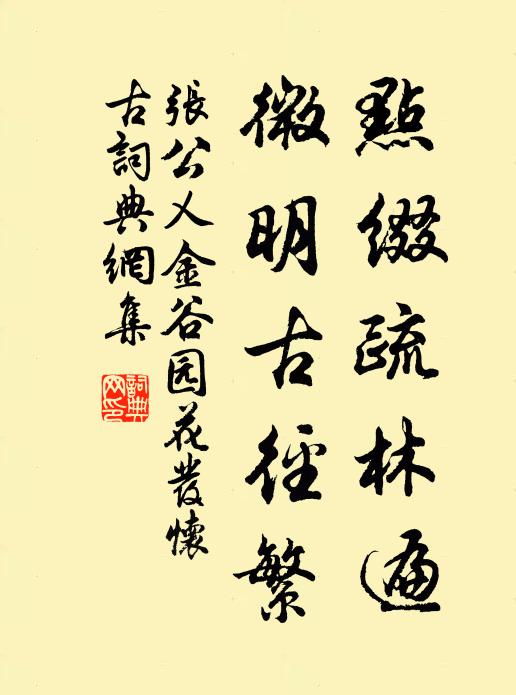 點綴疏林遍
微明古徑繁
張公乂金谷园花發懷
古詞典網集
詞典網印